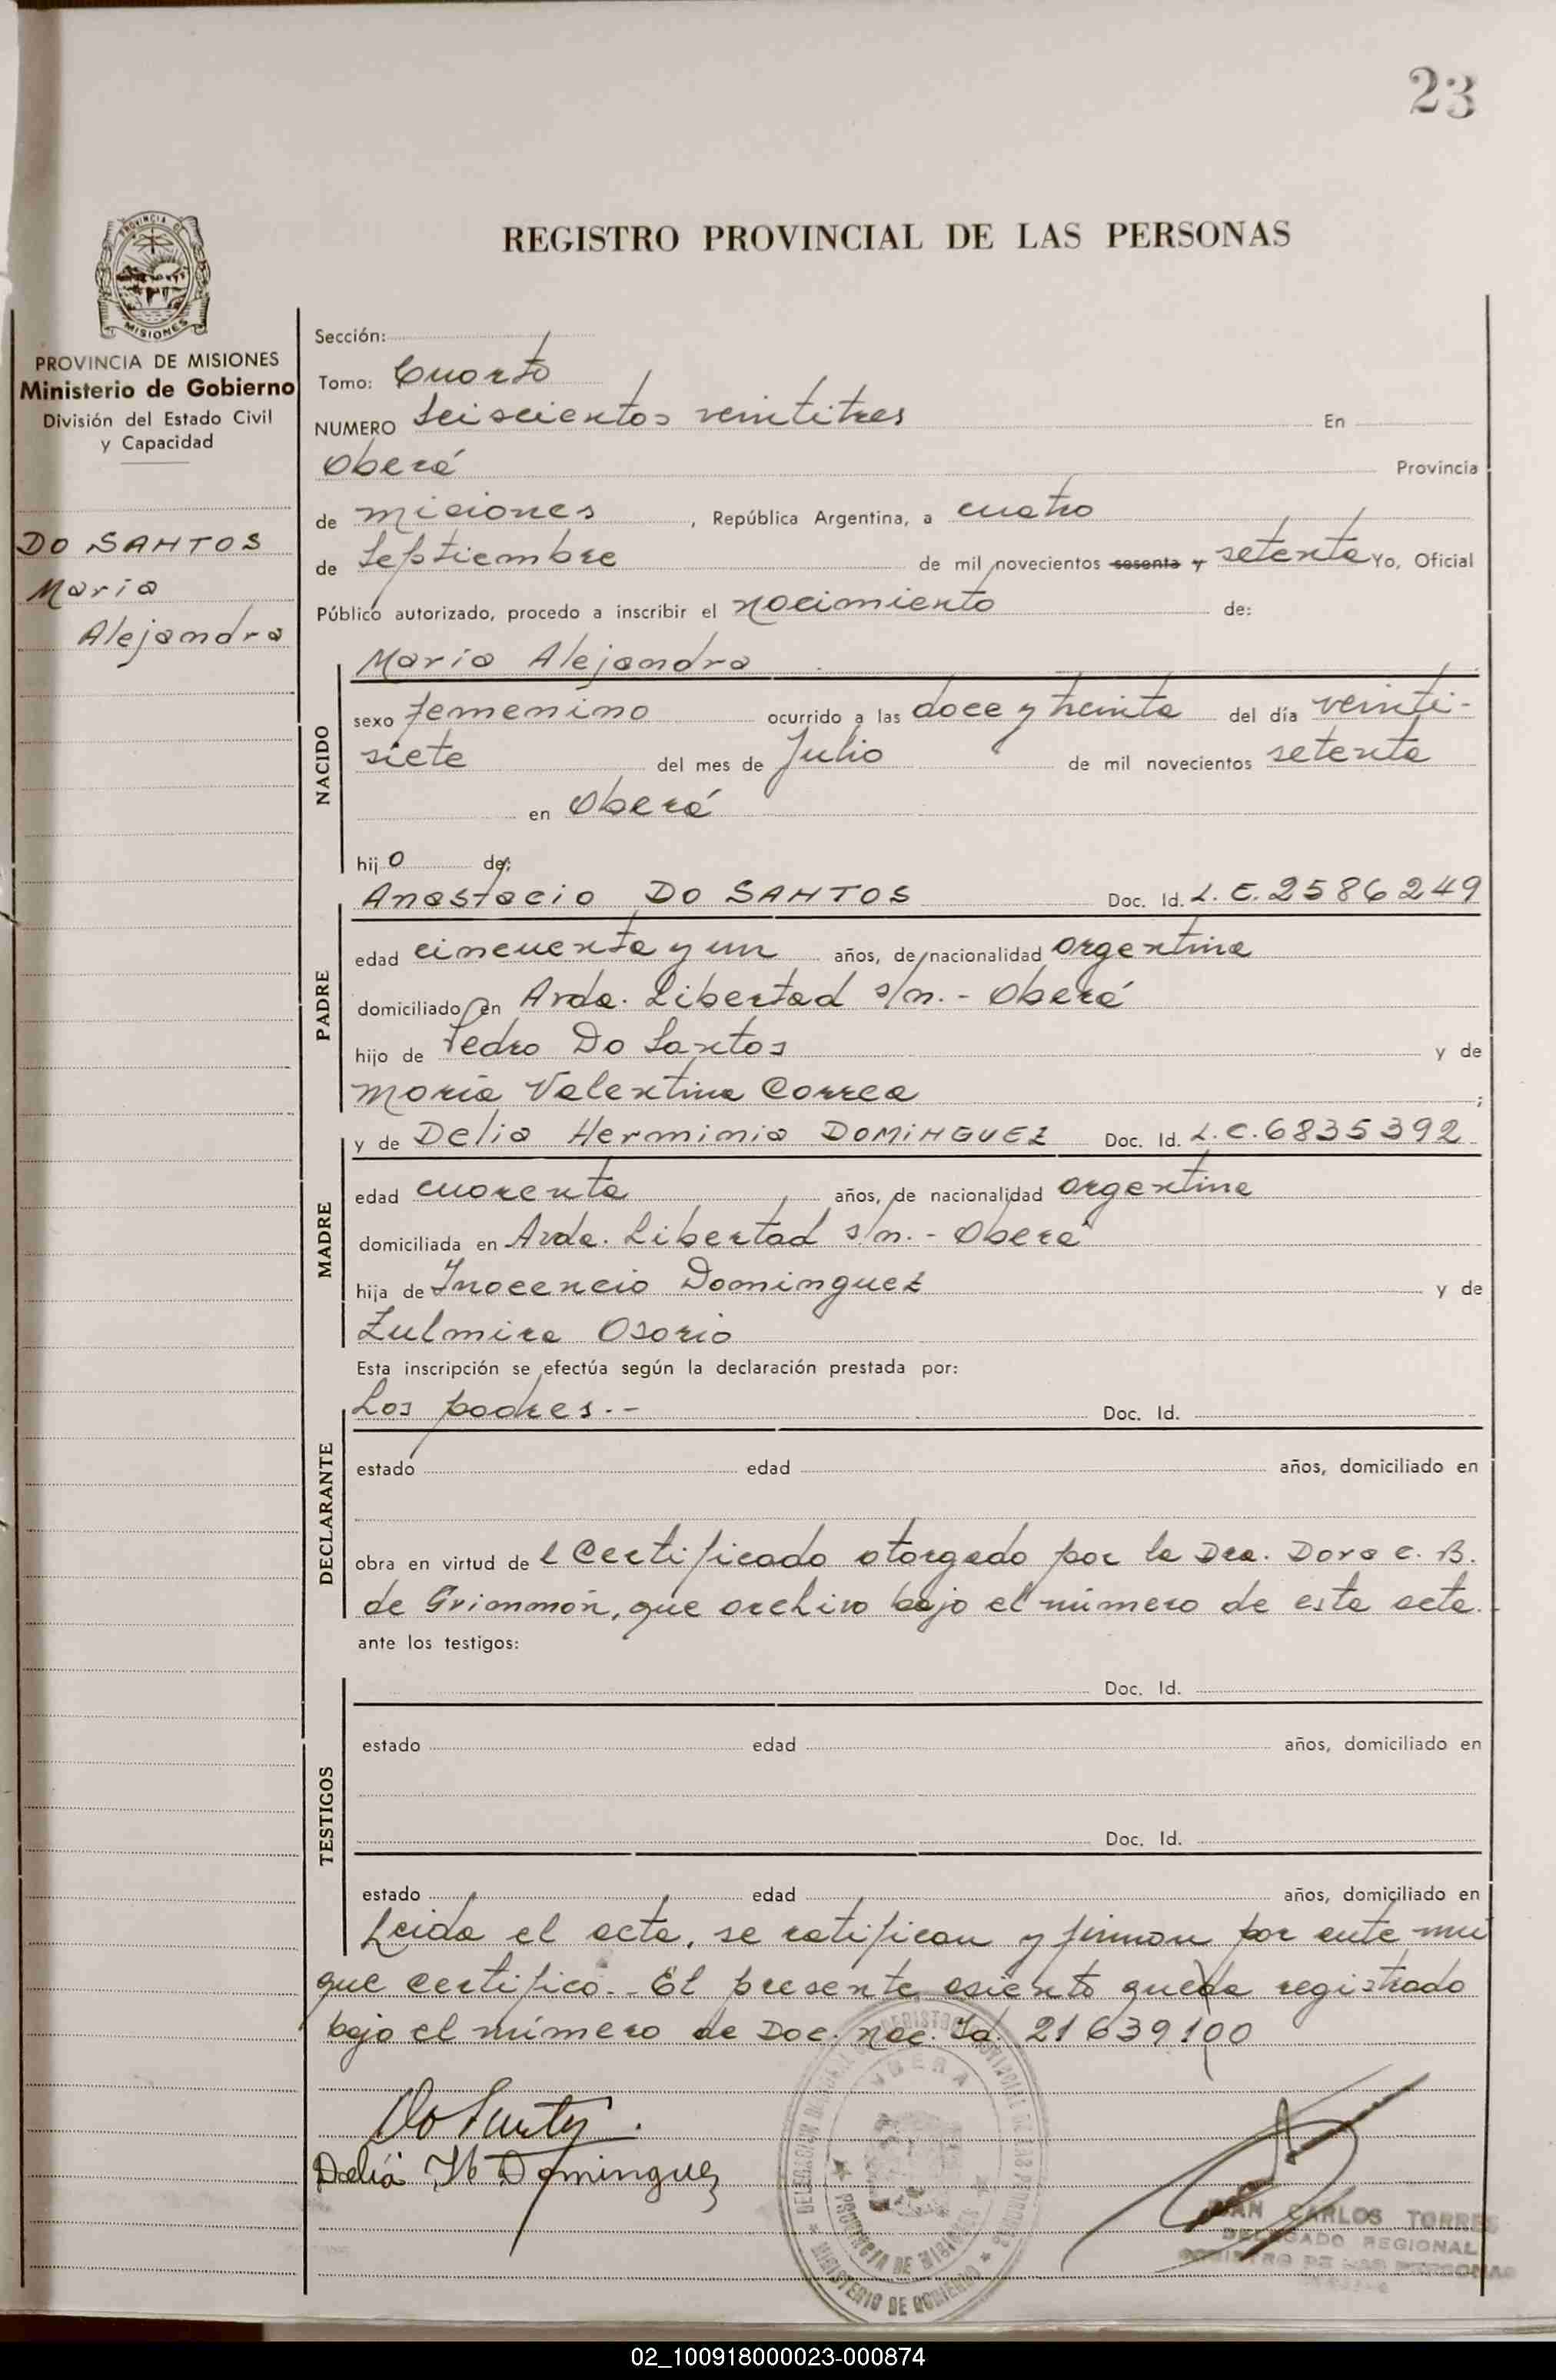 23
REGISTRO PROVINCIAL DE LAS PERSONAS
PROVINCIA DE MISIONES
Ministerio de Gobierno
División del Estado Civil
y Capacidad
DO SANTOS
Maria
Alejandra
Sección:
Tomo: Cuarto
NUMERO Seiscientos veintitres En
Oberá Provincia
de Misiones, República Argentina, a cuatro
de Septiembre de mil novecientos sesenta y setenta Yo, Oficial
Público autorizado, procedo a inscribir el nacimiento de:
NACIDO
Maria Alejandra
sexo femenino ocurrido a las doce y treinta del día veinti-
siete del mes de Julio de mil novecientos setenta
en Oberá
hijo de:
PADRE
Anastacio DO SANTOS Doc. Id. L.E. 2586249
edad cincuenta y un años, de nacionalidad argentina
domiciliado en Avda. Libertad s/n. - Oberá
hijo de Pedro Do Santos y de
María Valentina Correa;
MADRE
y de Delia Herminia DOMINGUEZ Doc. Id. L.C. 6835392
edad cuarenta años, de nacionalidad argentina
domiciliada en Avda. Libertad s/n. - Oberá
hija de Inocencio Dominguez y de
Zulmira Osorio
Esta inscripción se efectúa según la declaración prestada por:
DECLARANTE
Los padres.- Doc. Id.
estado edad años, domiciliado en
obra en virtud del Certificado otorgado por la Dra. Dora C. B.
de Grimmon, que archivo bajo el número de esta acta.
ante los testigos:
TESTIGOS
Doc. Id.
estado edad años, domiciliado en
Doc. Id.
estado edad años, domiciliado en
Leida el acta, se ratifican y firman por ante mi
que certifico.- El presente asiento queda registrado
bajo el número de Doc. Nac. Id. 21639100
Do Santos
Delia H Dominguez
OBERA
PROVINCIA DE MISIONES
MINISTERIO DE GOBIERNO
JUAN CARLOS TORRES
DELEGADO REGIONAL
REGISTRO DE LAS PERSONAS
02_100918000023-000874